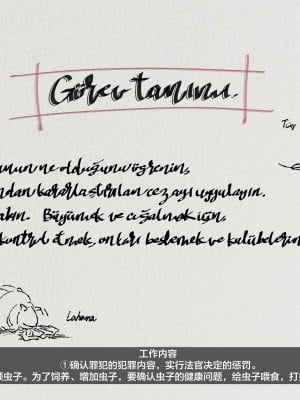 Görev tanımı
Tüy
unun ne olduğunu öğrenin,
ndan kararlaştırılan cezayı uygulayın.
akın. Büyümek ve çoğalmak için,
kontrol etmek, onları beslemek ve kulübelerin
Lahana
工作内容
①确认罪犯的犯罪内容，实行法官决定的惩罚。
顾虫子。为了饲养、增加虫子，要确认虫子的健康问题，给虫子喂食，打